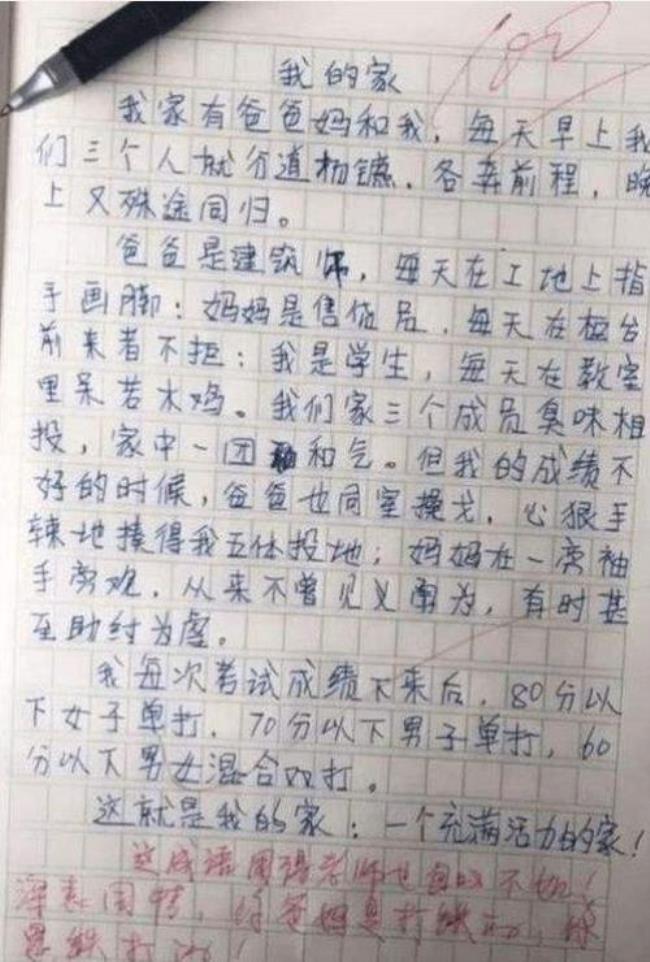 100
我的家
我家有爸爸妈和我，每天早上我
们三个人就分道扬镳，各奔前程，晚
上又殊途同归。
爸爸是建筑师，每天在工地上指
手画脚；妈妈是售货员，每天在柜台
前来者不拒；我是学生，每天在教室
里呆若木鸡。我们家三个成员臭味相
投，家中一团和气。但我的成绩不
好的时候，爸爸也同室操戈，心狠手
辣地揍得我五体投地；妈妈在一旁袖
手旁观，从来不曾见义勇为，有时甚
至助纣为虐。
我每次考试成绩下来后，80分以
下女子单打，70分以下男子单打，60
分以下男女混合双打。
这就是我的家：一个充满活力的家！
这成语用得老师也自叹不如！
深表同情，你爸妈是打铁的，你
是铁打的！